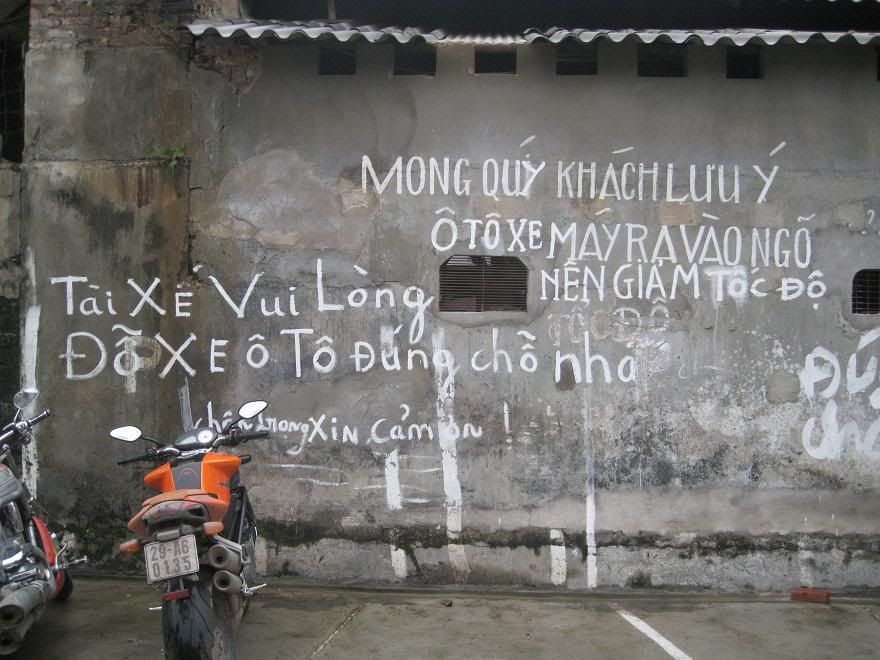 MONG QUÝ KHÁCH LƯU Ý
Ô TÔ XE MÁY RA VÀO NGÕ
NÊN GIẢM TỐC ĐỘ
TỐC ĐỘ
Tài XẾ Vui Lòng
ĐỖ XE Ô TÔ ĐÚNG chỗ nha
trọng XIN cảm ơn !
29-A6
0135